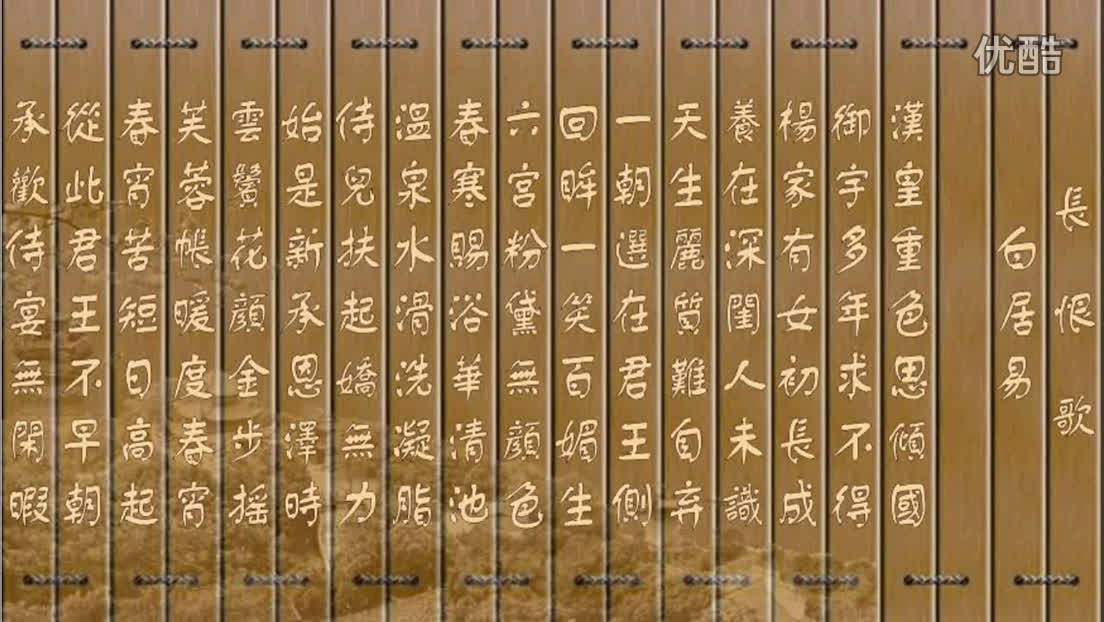 優酷
長恨歌
白居易
漢皇重色思傾國
御宇多年求不得
楊家有女初長成
養在深閨人未識
天生麗質難自弃
一朝選在君王側
回眸一笑百媚生
六宮粉黛無顏色
春寒賜浴華清池
溫泉水滑洗凝脂
侍兒扶起嬌無力
始是新承恩澤時
雲鬢花顏金步搖
芙蓉帳暖度春宵
春宵苦短日高起
從此君王不早朝
承歡侍宴無閑暇